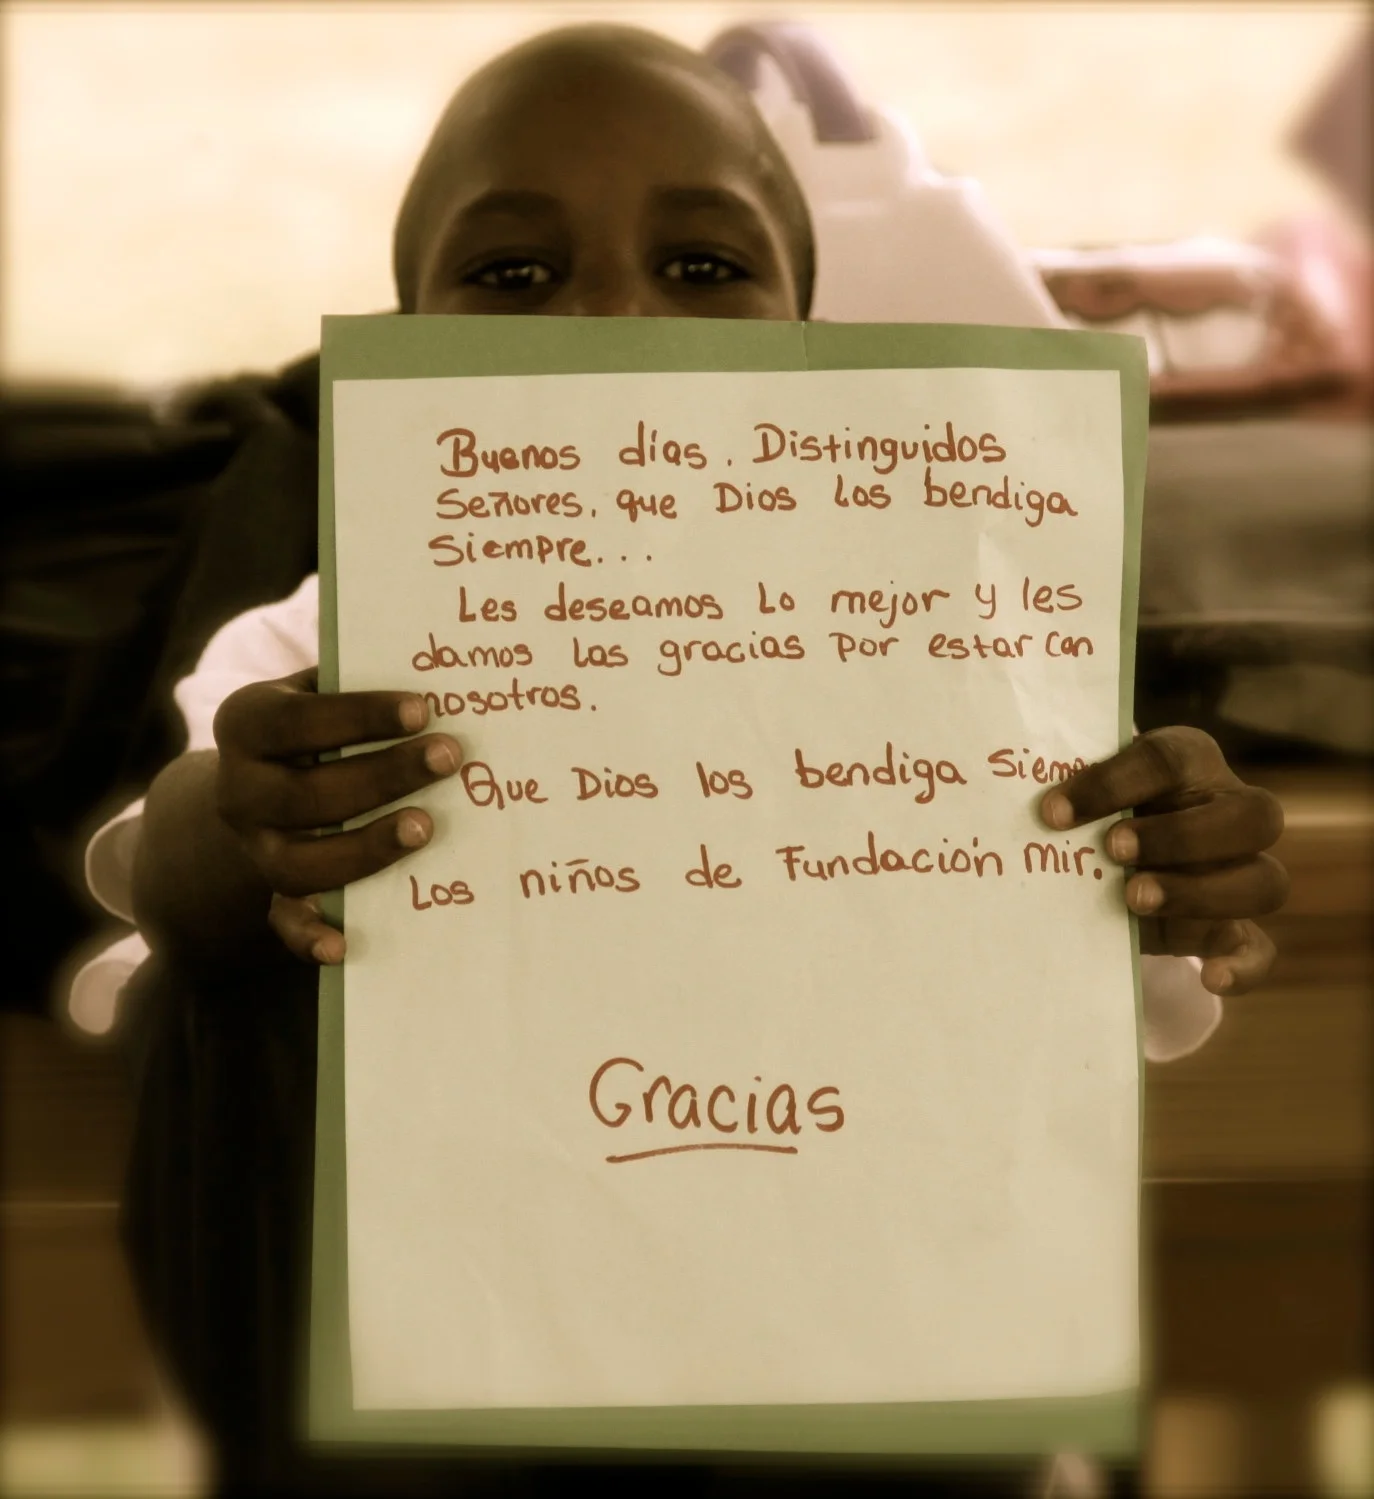 Buenos días. Distinguidos
Señores, que Dios los bendiga
siempre...
Les deseamos lo mejor y les
damos las gracias por estar con
nosotros.
Que Dios los bendiga
Los niños de Fundación mir.
Gracias